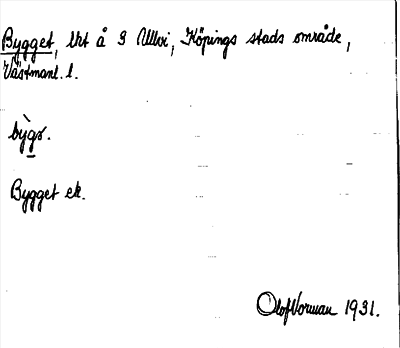 Bygget, lht å S Ullvi, Köpings stads område,
Västmanl. l.
bỳgs.
Bygget ek.
Olof Norman 1931.